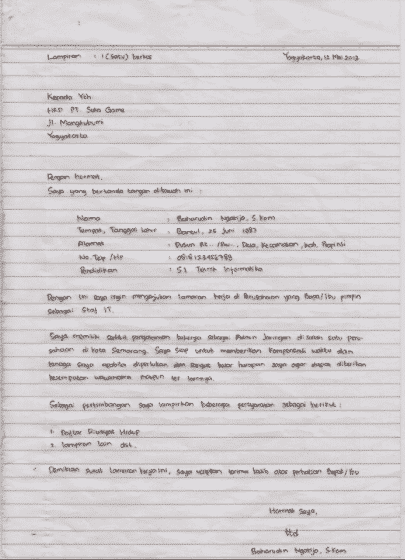 Lampiran : 1 (satu) berkas Yogyakarta, 12 Mei 2013
Kepada Yth
HRD PT. Suka Game
Jl. Mangkubumi
Yogyakarta
Dengan hormat,
Saya yang bertanda tangan dibawah ini :
Nama : Baharudin Ngarijo, S.Kom
Tempat, Tanggal Lahir : Bantul, 25 Juni 1987
Alamat : Dusun Rt.. /Rw.., Desa, Kecamatan, Kab, Propinsi
No. Telp /HP :
Pendidikan : S1 Teknik Informatika
Dengan ini saya ingin mengajukan lamaran kerja di Perusahaan yang Bapak/Ibu pimpin
sebagai Staf IT.
Saya memiliki sedikit pengalaman bekerja sebagai Admin Jaringan di salah satu peru
sahaan di kota Semarang. Saya siap untuk memberikan kompensasi waktu dan
tenaga saya apabila diperlukan dan sangat besar harapan saya agar dapat diberikan
kesempatan wawancara maupun tes lainnya.
Sebagai pertimbangan saya lampirkan beberapa persyaratan sebagai berikut :
1. Daftar Riwayat Hidup
2. Lampiran lain dst.
Demikian surat lamaran kerja ini, saya ucapkan terima kasih atas perhatian Bapak/Ibu
Hormat Saya,
ttd
Baharudin Ngarijo, S.Kom